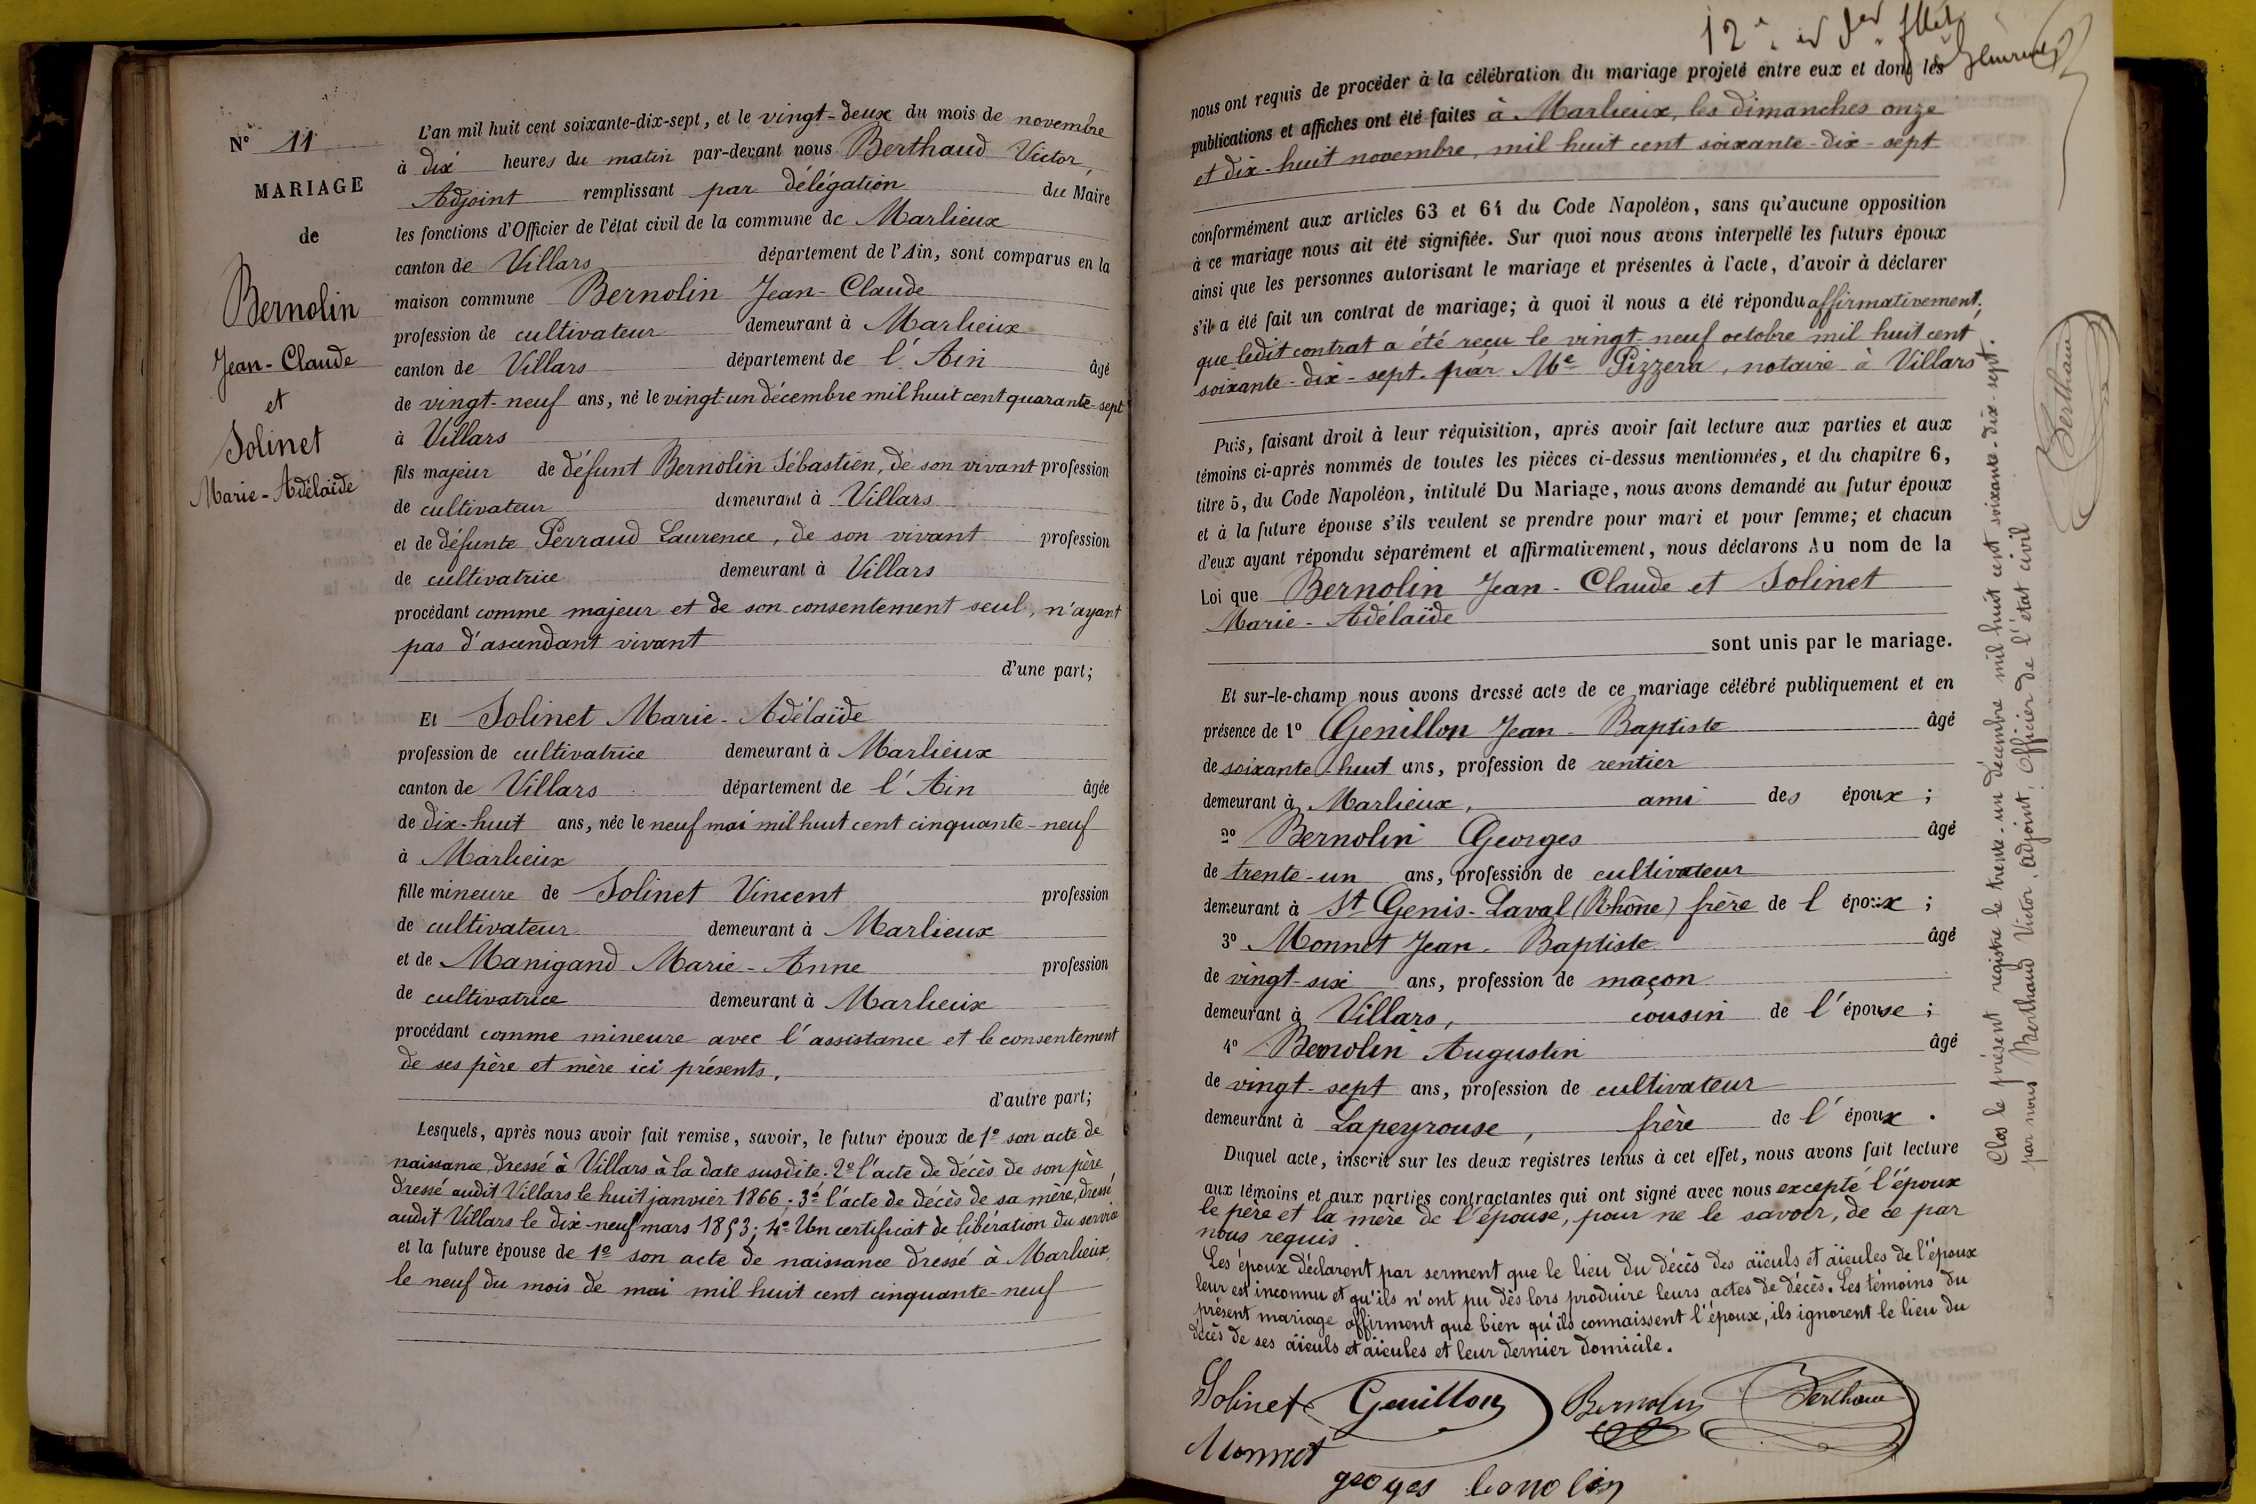 N° 11
MARIAGE
de
Bernolin
Jean-Claude
et
Solinet
Marie-Adélaïde
L'an mil huit cent soixante-dix-sept, et le vingt-deux du mois de novembre
à dix heures du matin par-devant nous Berthaud Victor,
Adjoint remplissant par délégation du Maire
les fonctions d'Officier de l'état civil de la commune de Marlieux
canton de Villars département de l'Ain, sont comparus en la
maison commune Bernolin Jean-Claude
profession de cultivateur demeurant à Marlieux
canton de Villars département de l'Ain âgé
de vingt-neuf ans, né le vingt-un décembre mil huit cent quarante-sept
à Villars
fils majeur de défunt Bernolin Sébastien, de son vivant profession
de cultivateur demeurant à Villars
et de défunte Perraud Laurence, de son vivant profession
de cultivatrice demeurant à Villars
procédant comme majeur et de son consentement seul, n'ayant
pas d'ascendant vivant
d'une part;
Et Solinet Marie-Adélaïde
profession de cultivatrice demeurant à Marlieux
canton de Villars département de l'Ain âgée
de dix-huit ans, née le neuf mai mil huit cent cinquante-neuf
à Marlieux
fille mineure de Solinet Vincent profession
de cultivateur demeurant à Marlieux
et de Manigand Marie-Anne profession
de cultivatrice demeurant à Marlieux
procédant comme mineure avec l'assistance et le consentement
de ses père et mère ici présents.
d'autre part;
Lesquels, après nous avoir fait remise, savoir, le futur époux de 1° son acte de
naissance, dressé à Villars à la date susdite. 2° l'acte de décès de son père
dressé audit Villars le huit janvier 1866; 3° l'acte de décès de sa mère, dressé
audit Villars le dix-neuf mars 1853; 4° Un certificat de libération du service
et la future épouse de 1° son acte de naissance dressé à Marlieux,
le neuf du mois de mai mil huit cent cinquante-neuf
nous ont requis de procéder à la célébration du mariage projeté entre eux et dont les
publications et affiches ont été faites à Marlieux, les dimanches onze
et dix-huit novembre, mil huit cent soixante-dix-sept
conformément aux articles 63 et 64 du Code Napoléon, sans qu'aucune opposition
à ce mariage nous ait été signifiée. Sur quoi nous avons interpellé les futurs époux
ainsi que les personnes autorisant le mariage et présentes à l'acte, d'avoir à déclarer
s'il a été fait un contrat de mariage; à quoi il nous a été répondu affirmativement,
que ledit contrat a été reçu le vingt-neuf octobre mil huit cent
soixante-dix-sept. par Me Pizzera, notaire à Villars
Puis, faisant droit à leur réquisition, après avoir fait lecture aux parties et aux
témoins ci-après nommés de toutes les pièces ci-dessus mentionnées, et du chapitre 6,
titre 5, du Code Napoléon, intitulé Du Mariage, nous avons demandé au futur époux
et à la future épouse s'ils veulent se prendre pour mari et pour femme; et chacun
d'eux ayant répondu séparément et affirmativement, nous déclarons Au nom de la
Loi que Bernolin Jean-Claude et Solinet
Marie-Adélaïde
sont unis par le mariage.
Et sur-le-champ nous avons dressé acte de ce mariage célébré publiquement et en
présence de 1° Genillon Jean-Baptiste âgé
de soixante-huit ans, profession de rentier
demeurant à Marlieux, ami des époux;
2° Bernolin Georges âgé
de trente-un ans, profession de cultivateur
demeurant à St Genis-Laval (Rhône) frère de l'époux;
3° Monnet Jean-Baptiste âgé
de vingt-six ans, profession de maçon
demeurant à Villars, cousin de l'épouse;
4° Bernolin Augustin âgé
de vingt-sept ans, profession de cultivateur
demeurant à Lapeyrouse, frère de l'époux.
Duquel acte, inscrit sur les deux registres tenus à cet effet, nous avons fait lecture
aux témoins et aux parties contractantes qui ont signé avec nous excepté l'époux
le père et la mère de l'épouse, pour ne le savoir, de ce par
nous requis
Les époux déclarent par serment que le lieu du décès des aïeuls et aïeules de l'époux
leur est inconnu et qu'ils n'ont pu dès lors produire leurs actes de décès. Les témoins du
présent mariage affirment que bien qu'ils connaissent l'époux, ils ignorent le lieu du
décès de ses aïeuls et aïeules et leur dernier domicile.
Solinet Genillon Bernolin Berthaud
Monnet
georges bernolin
Clos le présent registre le trente-un décembre mil huit cent soixante-dix-sept.
par nous Berthaud Victor, adjoint, Officier de l'état civil
Berthaud